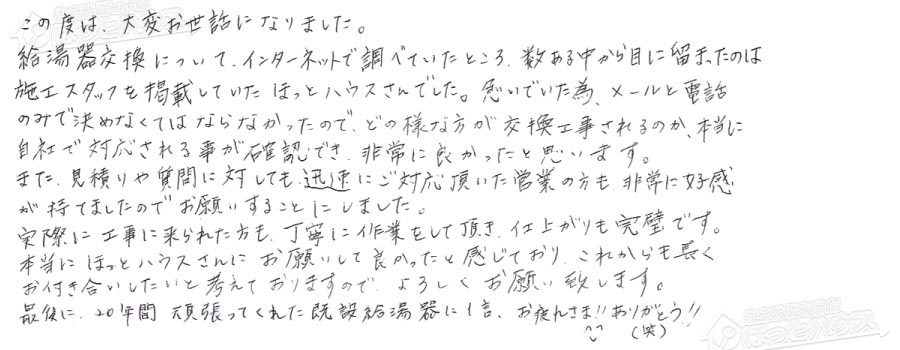 この度は、大変お世話になりました。
給湯器交換について、インターネットで調べていたところ、数ある中から目に留まったのは
施工スタッフを掲載していたほっとハウスさんでした。急いでいた為、メールと電話
のみで決めなくてはならなかったので、どの様な方が交換工事されるのか、本当に
自社で対応される事が確認でき、非常に良かったと思います。
また、見積りや質問に対しても、迅速にご対応頂いた営業の方も、非常に好感
が持てましたのでお願いすることにしました。
実際に工事に来られた方も、丁寧に作業をして頂き、仕上がりも完璧です。
本当にほっとハウスさんにお願いして良かったと感じており、これからも長く
お付き合いしたいと考えておりますので、よろしくお願い致します。
最後に、20年間 頑張ってくれた既設給湯器に1言、お疲れさま!!ありがとう!!
(笑)
ほっとハウス